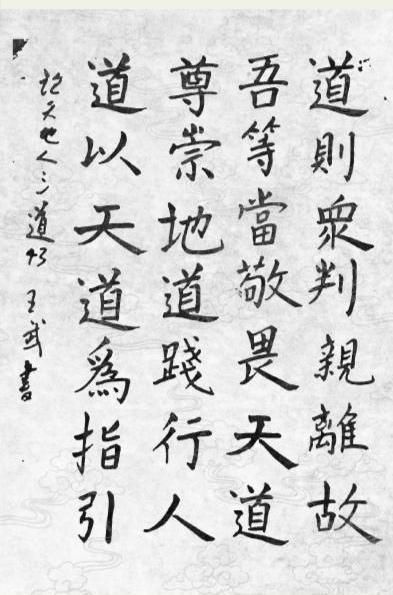 道則衆判親離故
吾等當敬畏天道
尊崇地道踐行人
道以天道爲指引
天地人三道
王武書